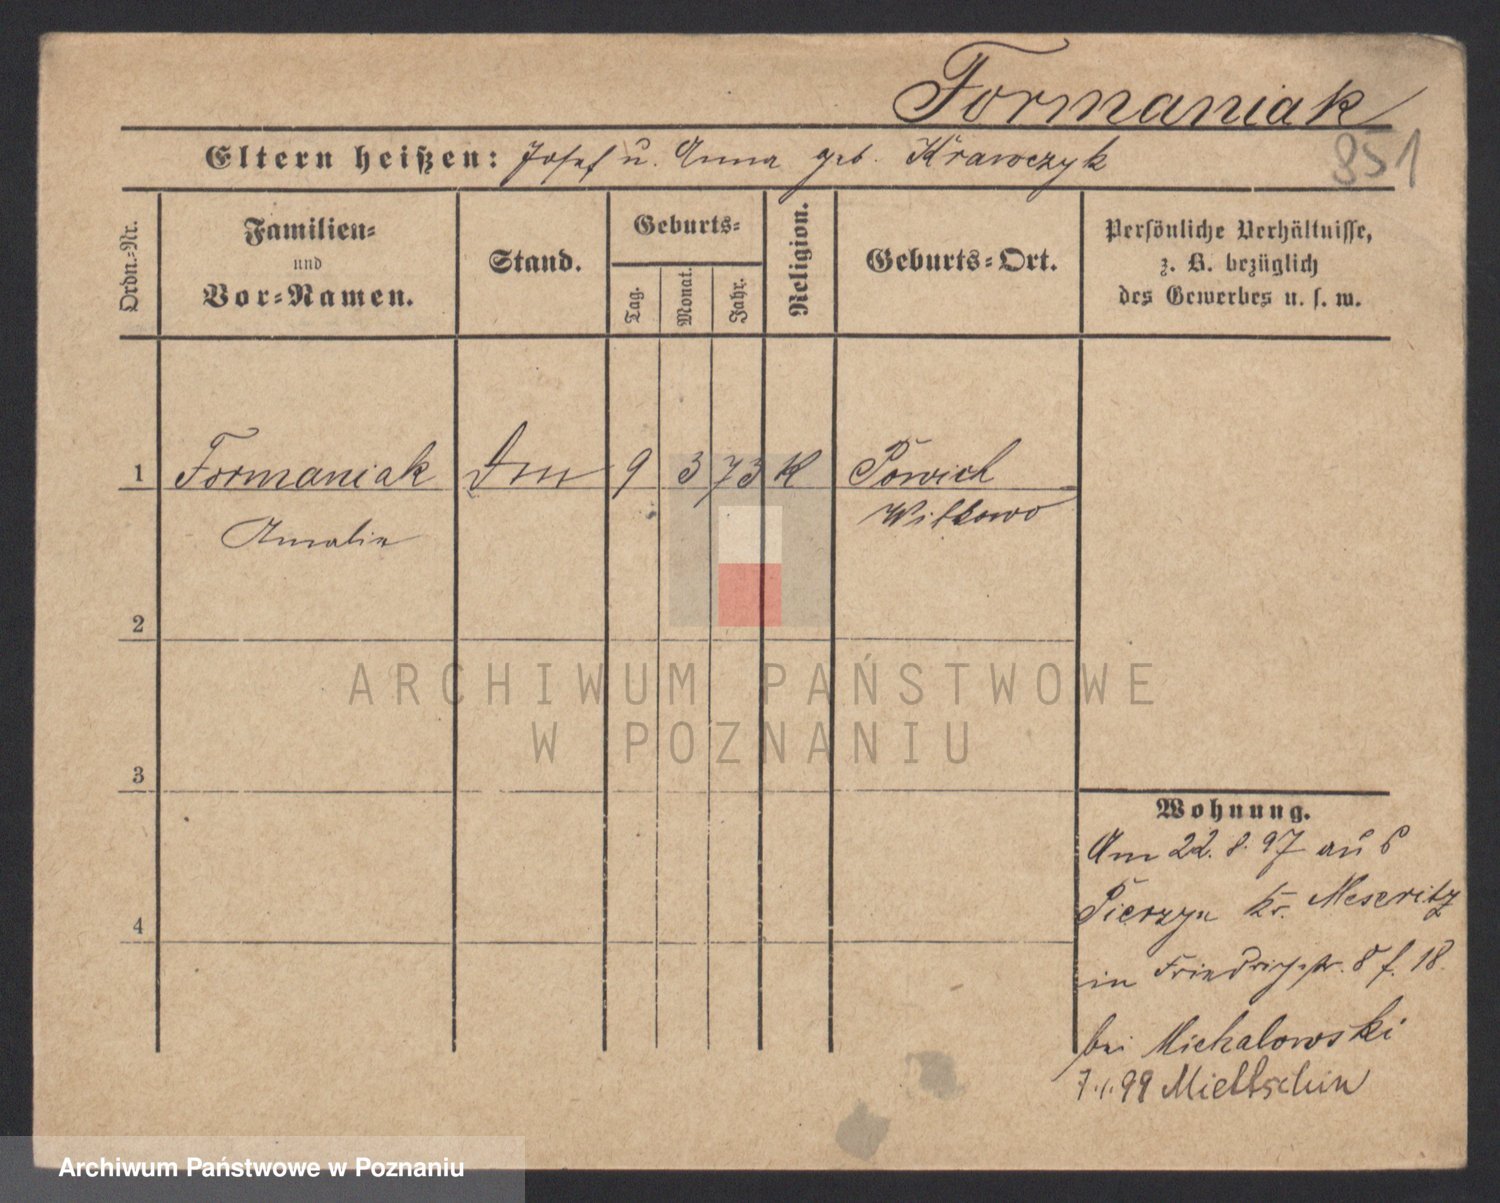 Formaniak
851
Eltern heißen: Josef u. Anna geb. Krawczyk
Ordn.-Nr.
Familien-
und
Vor-Namen.
Stand.
Geburts-
Tag.
Monat.
Jahr.
Religion.
Geburts-Ort.
Persönliche Verhältnisse,
z. B. bezüglich
des Gewerbes u. s. w.
1 Formaniak 9 3 73 K Powich
Amalie Witkowo
2
3
4
ARCHIWUM PAŃSTWOWE
W POZNANIU
Wohnung.
Am 22. 8. 97 aus
Pierzyn Kr. Meseritz
in Friedrichstr. 8 f. 18.
bei Michalowski
99 Mieltschin
Archiwum Państwowe w Poznaniu